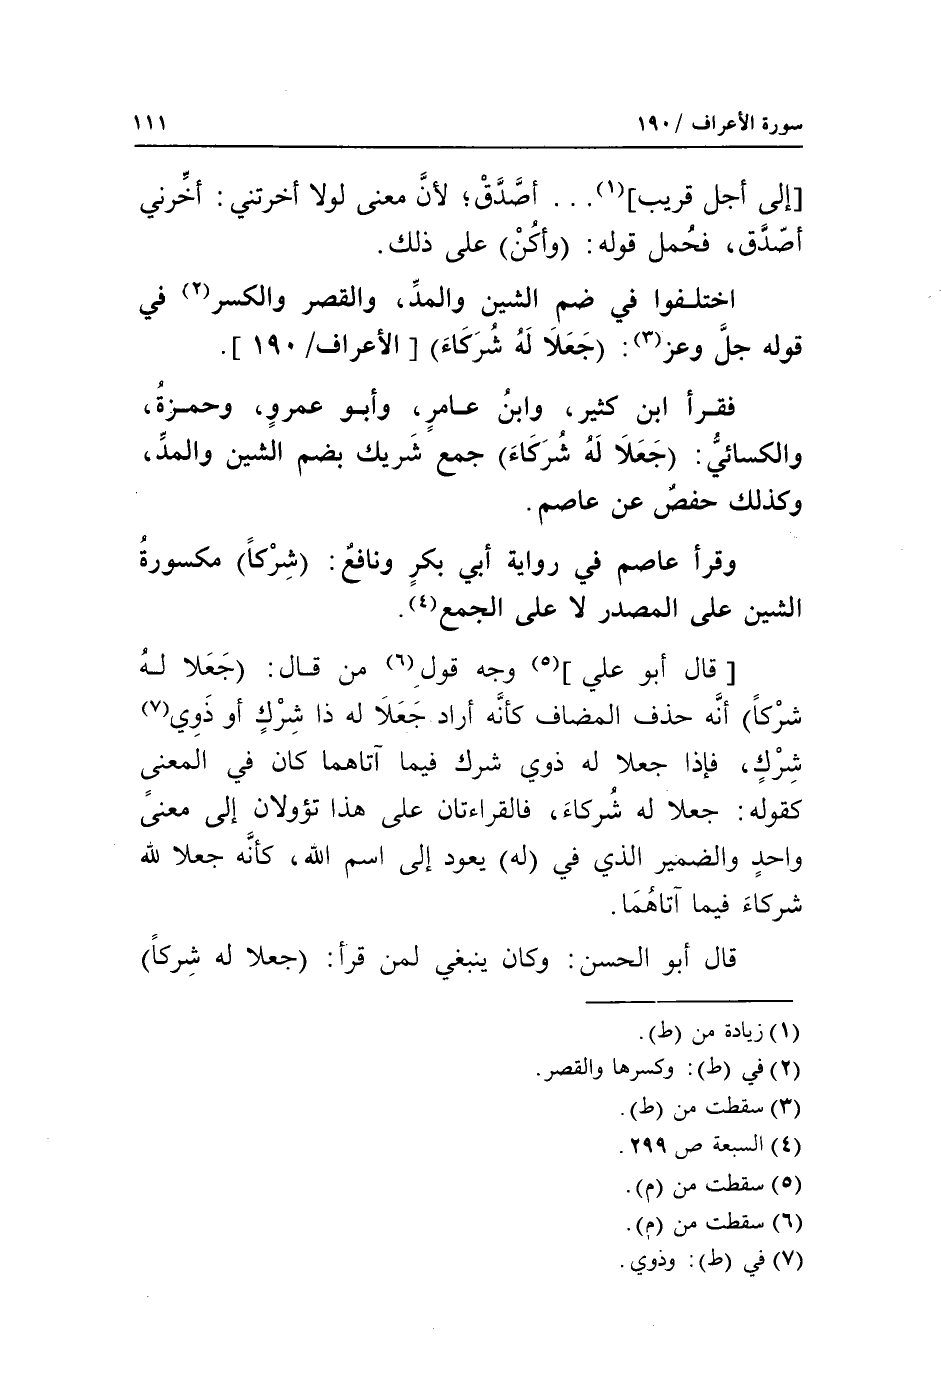 سورة الأعراف /١٩٠ ١١١
[إلى أجل قريب](١). . . أصَّدَّقْ؛ لأنَّ معنى لولا أخرتني: أخِّرني
أصّدَّق، فحُمل قوله: (وأكُنْ) على ذلك.
اختلـفوا في ضم الشين والمدِّ، والقصر والكسر(٢) في
قوله جلَّ وعز(٣): (جَعَلَا لَهُ شُرَكَاءَ) [ الأعراف/ ١٩٠ ].
فقـرأ ابن كثير، وابنُ عـامرٍ، وأبـو عمروٍ، وحمـزةُ،
والكسائيُّ: (جَعَلَا لَهُ شُرَكَاءَ) جمع شَريك بضم الشين والمدِّ،
وكذلك حفصٌ عن عاصم.
وقرأ عاصم في رواية أبي بكرٍ ونافعٌ: (شِرْكاً) مكسورةُ
الشين على المصدر لا على الجمع(٤).
[ قال أبو علي ](٥) وجه قول(٦) من قـال: (جَعَلا لـهُ
شرْكاً) أنَّه حذف المضاف كأنَّه أراد جَعَلَا له ذا شِرْكٍ أو ذَوِي(٧)
شِرْكٍ، فإذا جعلا له ذوي شرك فيما آتاهما كان في المعنى
كقوله: جعلا له شُركاءَ، فالقراءتان على هذا تؤولان إلى معنىً
واحدٍ والضمير الذي في (له) يعود إلى اسم الله، كأنَّه جعلا لله
شركاءَ فيما آتاهُمَا.
قال أبو الحسن: وكان ينبغي لمن قرأ: (جعلا له شِركاً)
(١) زيادة من (ط).
(٢) في (ط): وكسرها والقصر.
(٣) سقطت من (ط).
(٤) السبعة ص ٢٩٩.
(٥) سقطت من (م).
(٦) سقطت من (م).
(٧) في (ط): وذوي.